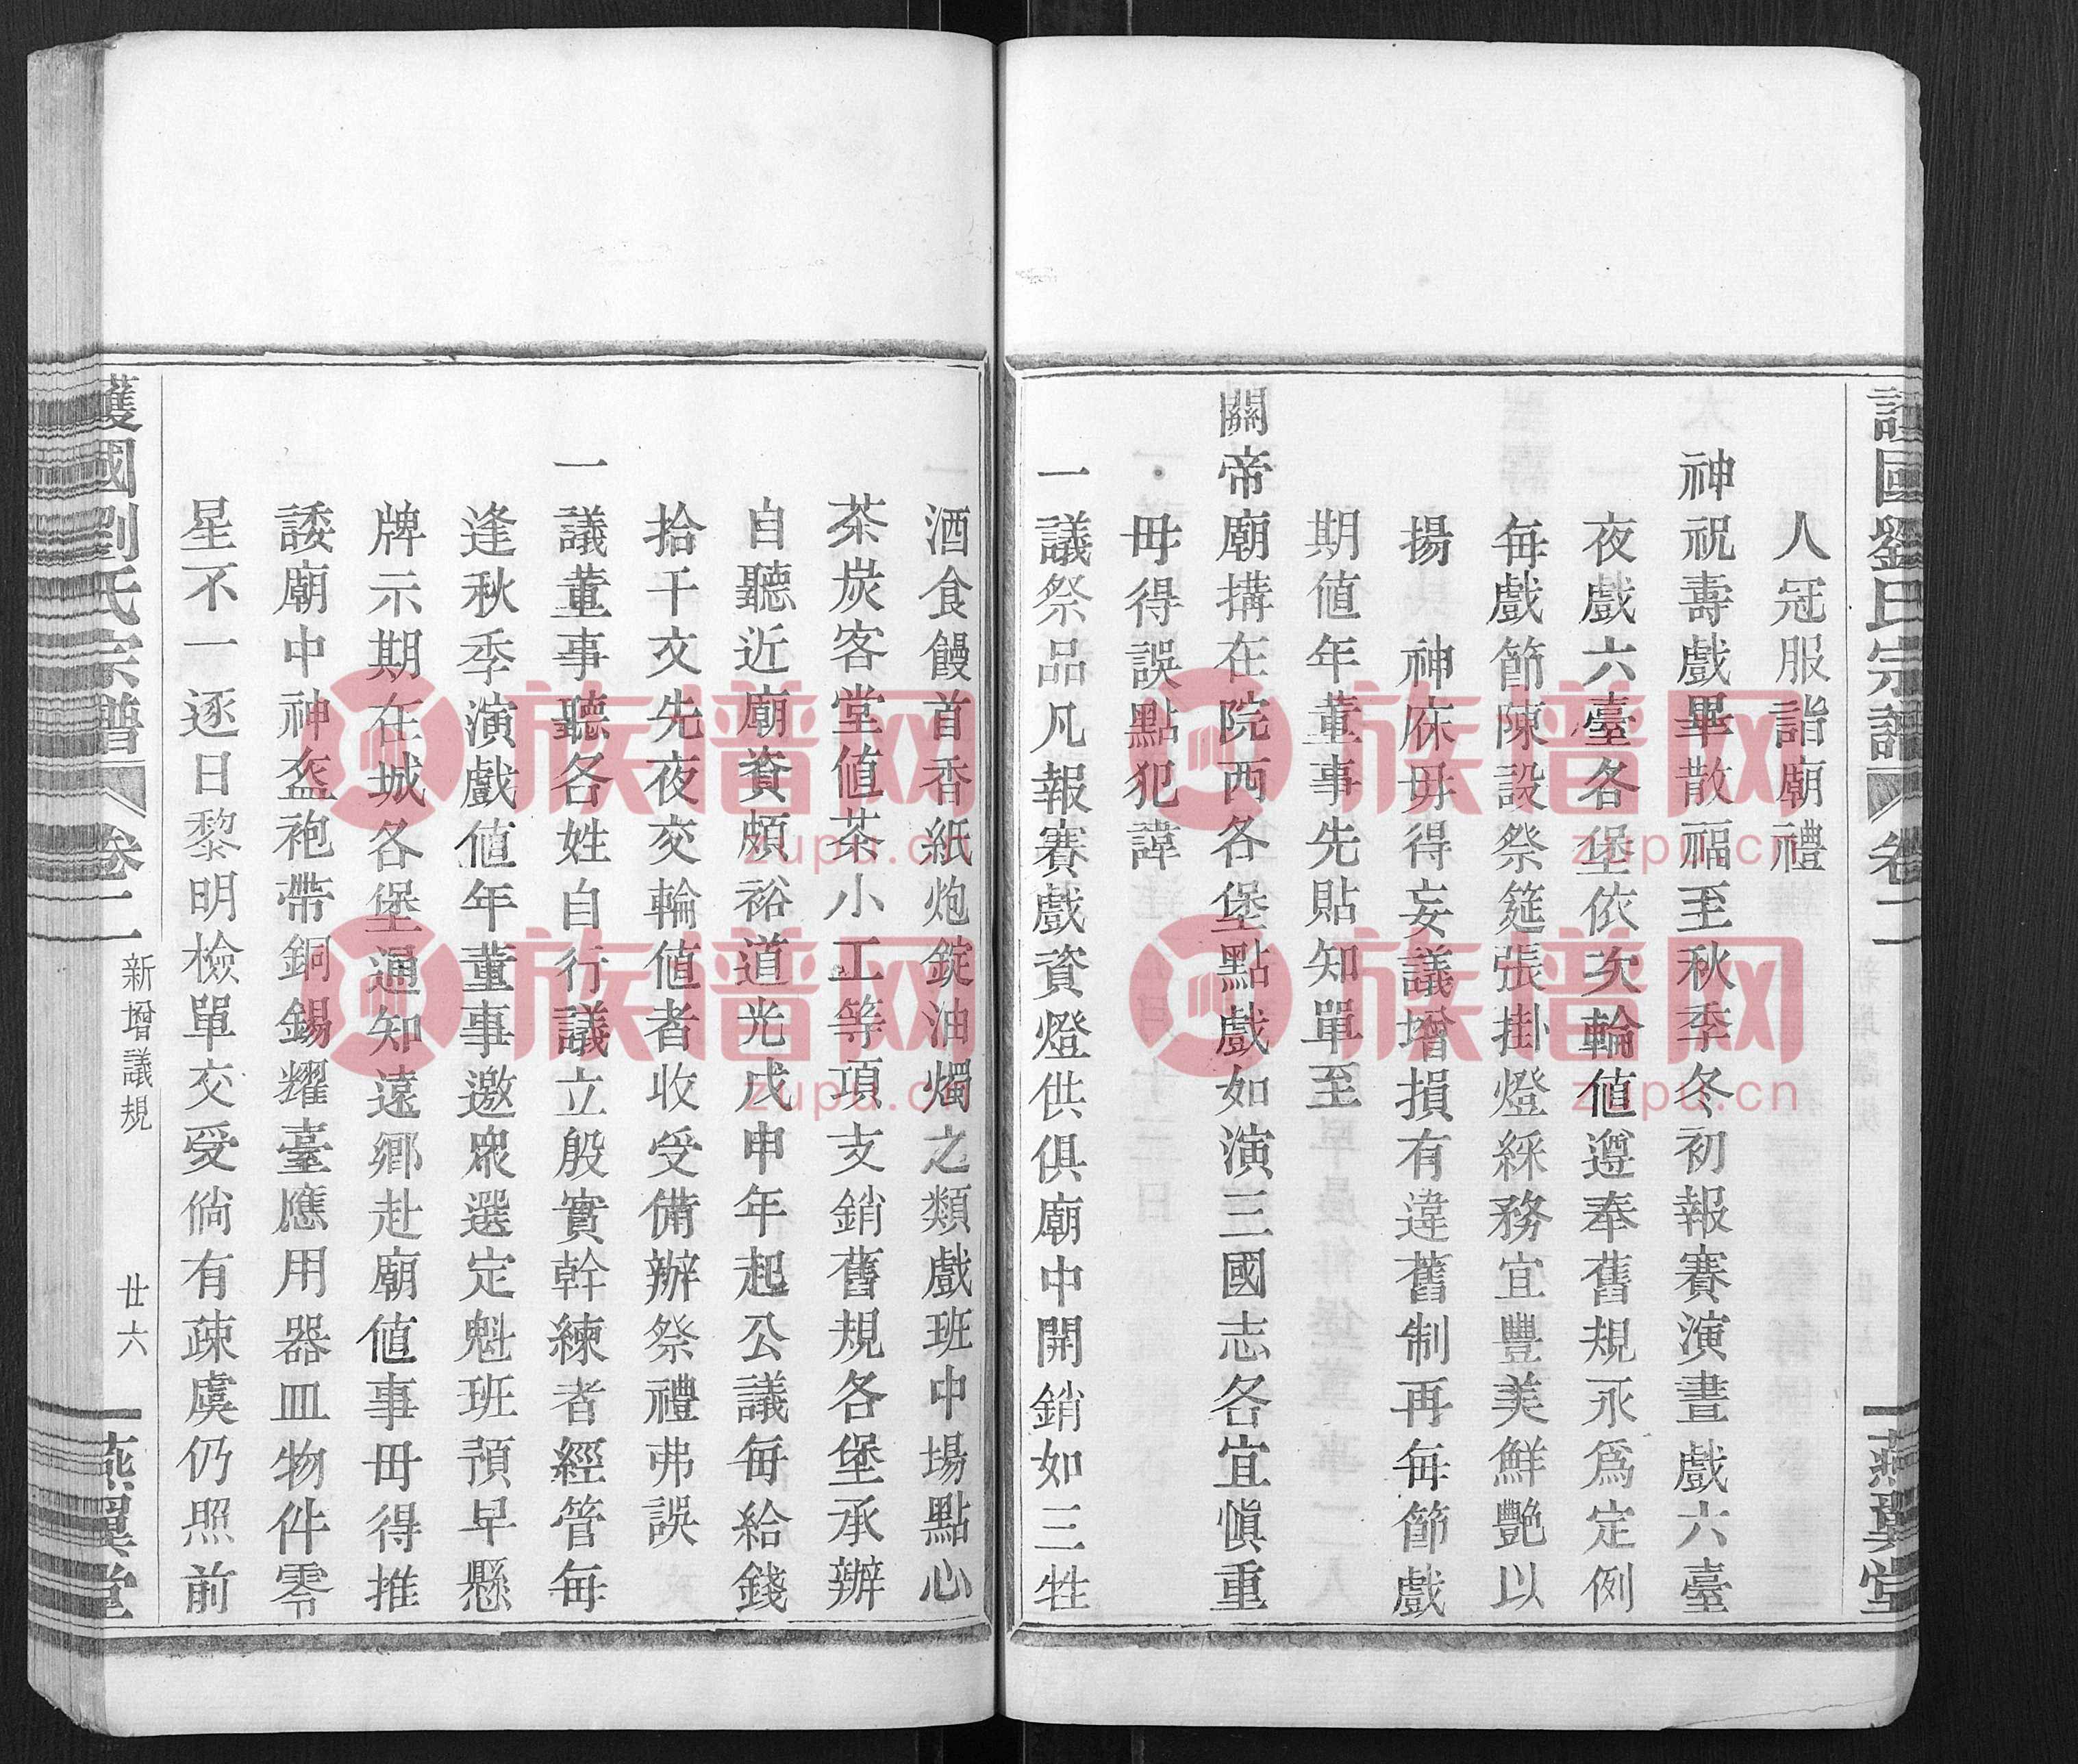 護國劉氏宗譜 卷二 燕翼堂
人冠服詣廟禮
神祝壽戲畢散福至秋季冬初報賽演晝戲六臺
夜戲六臺各堡依次輪值遵奉舊規永爲定例
每戲節陳設祭筵張掛燈綵務宜豐美鮮艷以
揚 神庥毋得妄議增損有違舊制再每節戲
期值年董事先貼知單至
關帝廟搆在院西各堡點戲如演三國志各宜愼重
毋得誤點犯諱
一議祭品凡報賽戲資燈供俱廟中開銷如三牲
酒食饅首香紙炮錠油燭之類戲班中場點心
茶炭客堂值茶小工等項支銷舊規各堡承辦
自聽近廟資頗裕道光戊申年起公議每給錢
拾千文先夜交輪值者收受備辦祭禮弗誤
一議董事聽各姓自行議立殷實幹練者經管每
逢秋季演戲值年董事邀衆選定魁班預早懸
牌示期在城各堡通知遠鄉赴廟值事毋得推
諉廟中神盔袍帶銅錫耀臺應用器皿物件零
星不一逐日黎明檢單交受倘有疎虞仍照前
護國劉氏宗譜 卷二 新增議規 廿六 燕翼堂
族谱网
zupu.cn
族谱网
zupu.cn
族谱网
zupu.cn
族谱网
zupu.cn